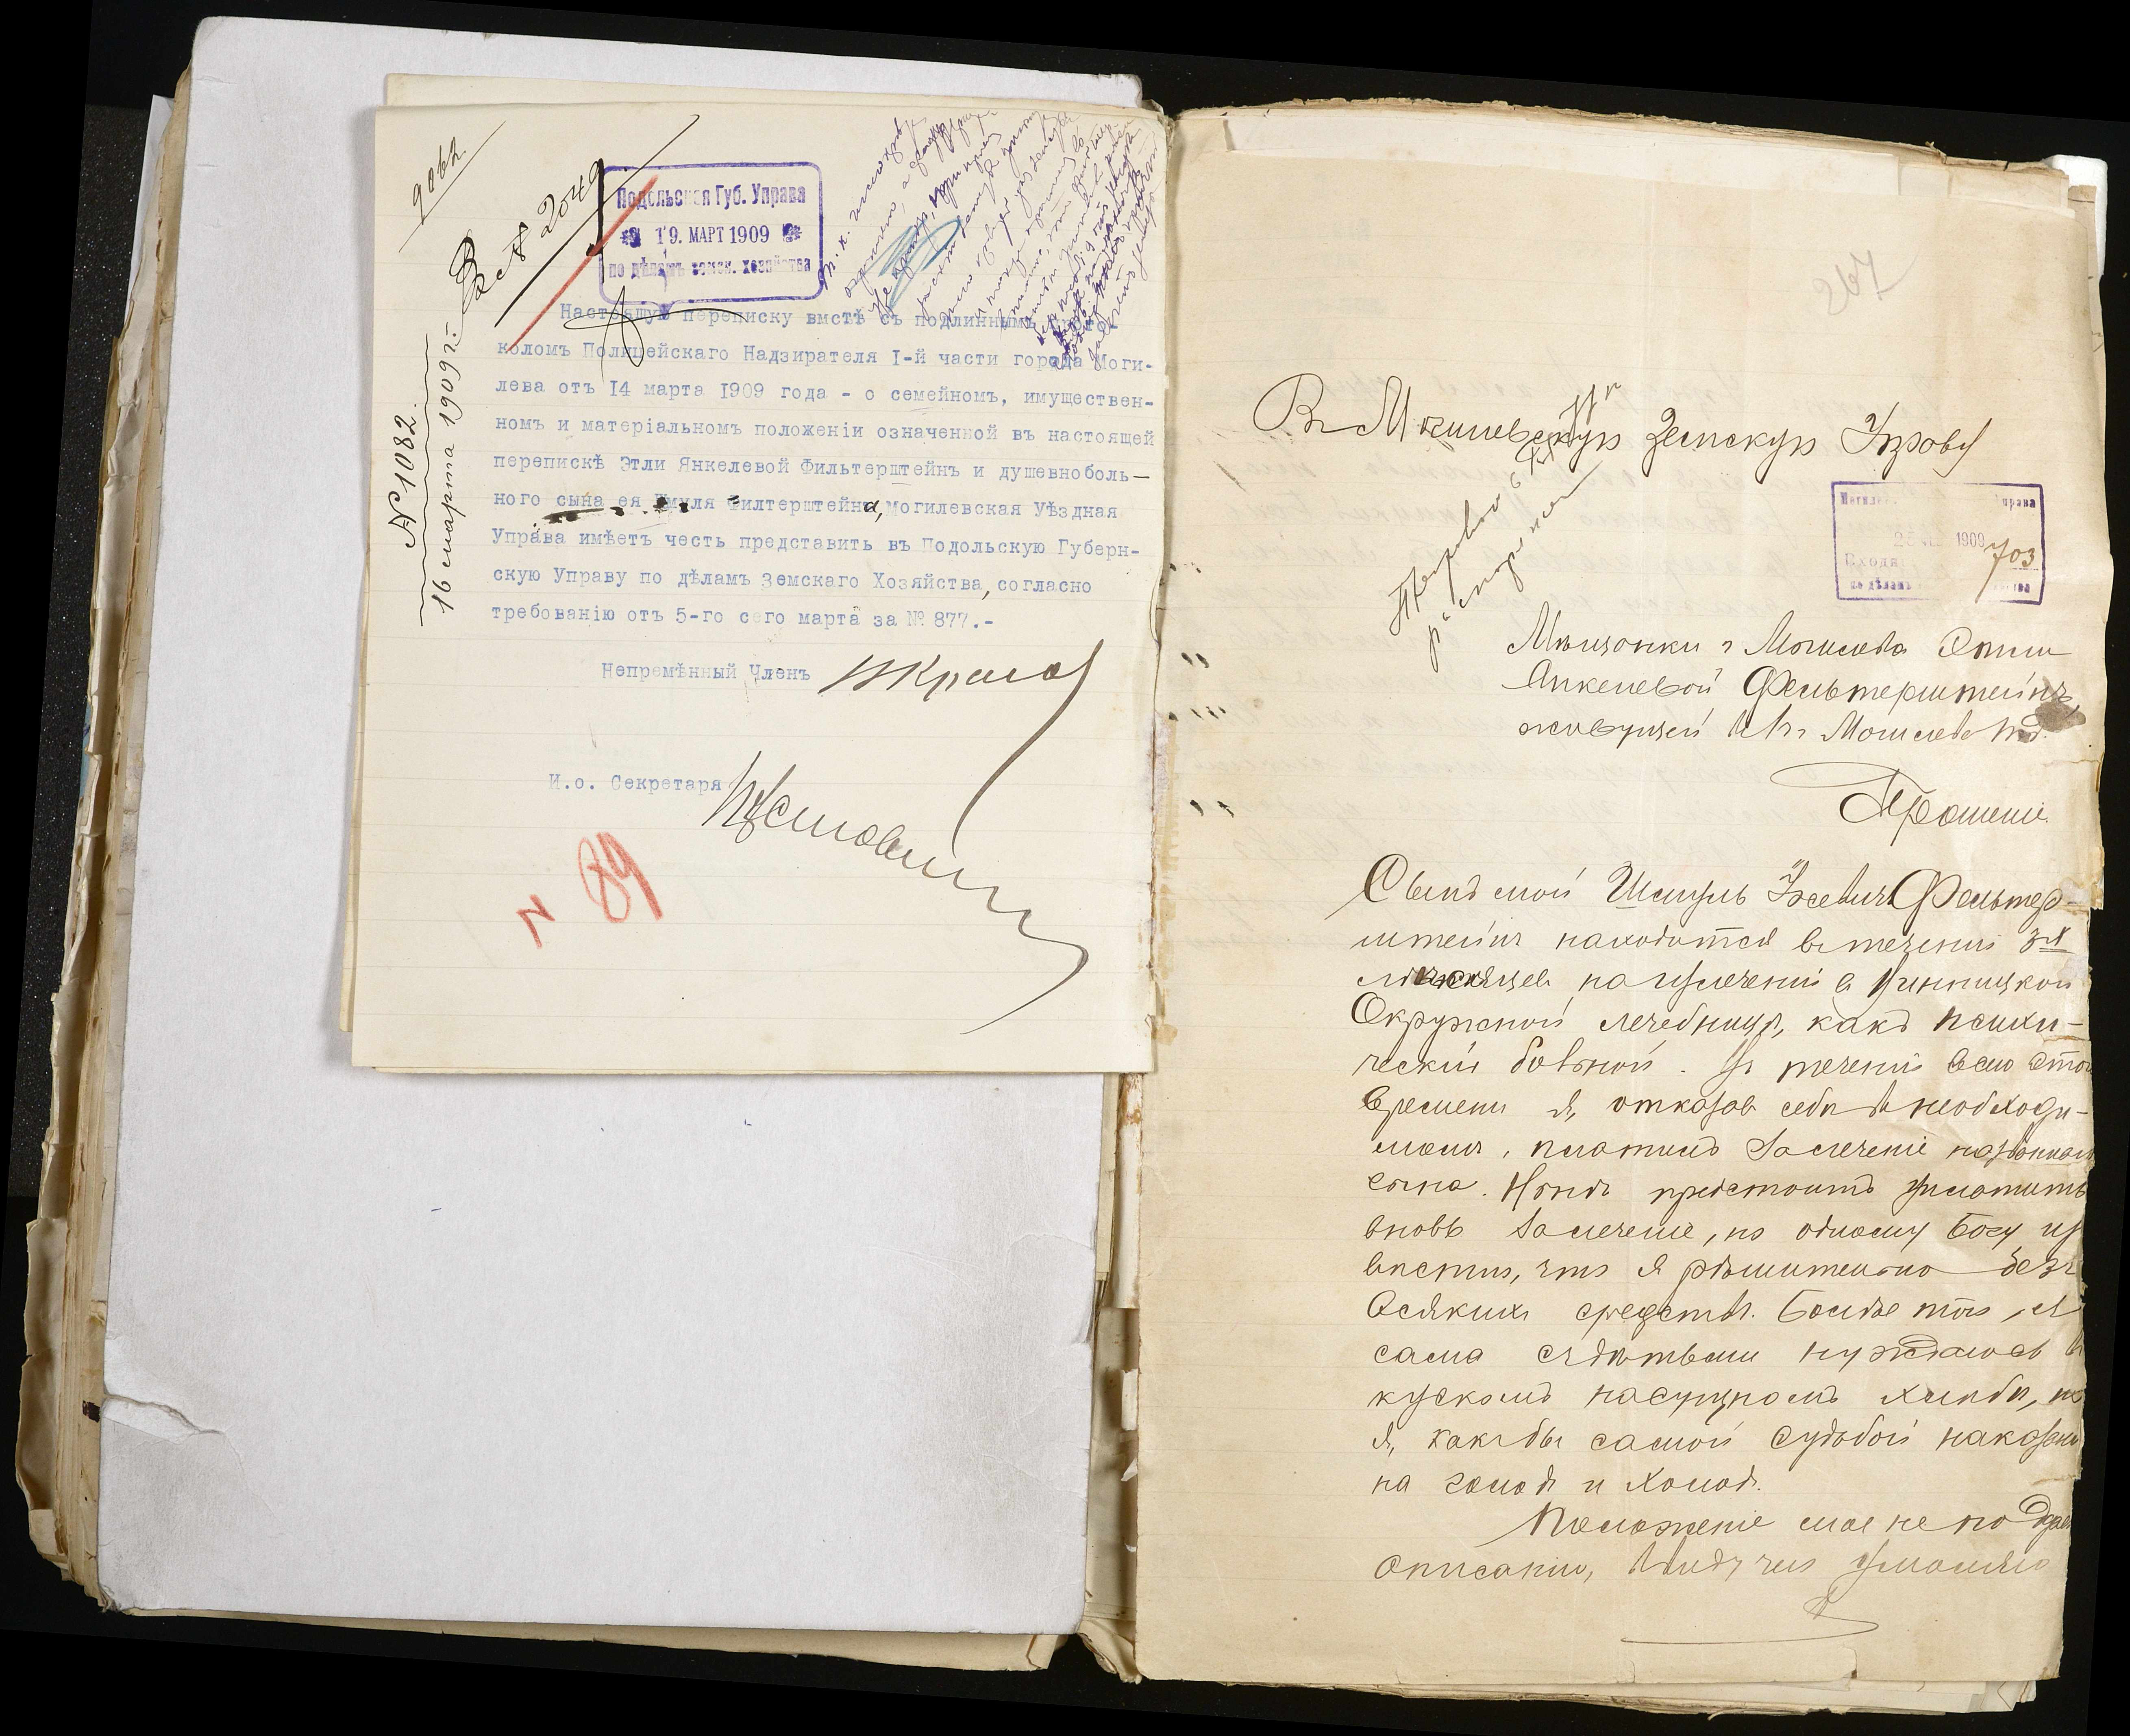 9 об.
Вх № 2049
Подольская Губ. Управа
19. МАРТ 1909
по дѣламъ земск. хозяйства
№ 1082.
16 марта 1909 г.
Настоящую переписку вмстѣ съ подлиннымъ
коломъ Полицейскаго Надзирателя I-й части города Моги-
лева отъ 14 марта 1909 года - о семейномъ, имуществен-
номъ и матеріальномъ положеніи означенной въ настоящей
перепискѣ Этли Янкелевой Фильтерштейнъ и душевноболь-
ного сына ея Шмуля Филтерштейна, Могилевская Уѣздная
Управа имѣетъ честь представить въ Подольскую Губерн-
скую Управу по дѣламъ Земскаго Хозяйства, согласно
требованію отъ 5-го сего марта за № 877.-
Непремѣнный Членъ
И.о. Секретаря
N 89
267
Въ Могилевскую Земскую Управу
1909
703
по дѣламъ
Мѣщанки г Могилева Этли
Янкелевой Фельтерштейнъ,
живущей въ г Могилевѣ
Прошеніе.
Сынъ мой Шмуль Фельтер-
штейнъ находится въ теченіи 3х
мѣсяцевъ на излеченіи в Винницкой
Окружной лечебницѣ, какъ психи-
ческій больной. Въ теченіи всего этого
времени я, отказав себѣ въ необходи-
момъ, платилъ за леченіе названнаго
сына. Нынѣ предстоитъ уплатить
вновь за леченіе, но одному Богу из
вѣстно, что я рѣшительно безъ
всякихъ средствъ. Болѣе того, я
сама съ дѣтьми нуждаюсь в
кускомъ насущномъ хлѣбѣ, но
я, какъ бы самой судьбой наказана
на голодъ и холодъ.
Положеніе мое не поддает
описанію, въ виду чего умоляю